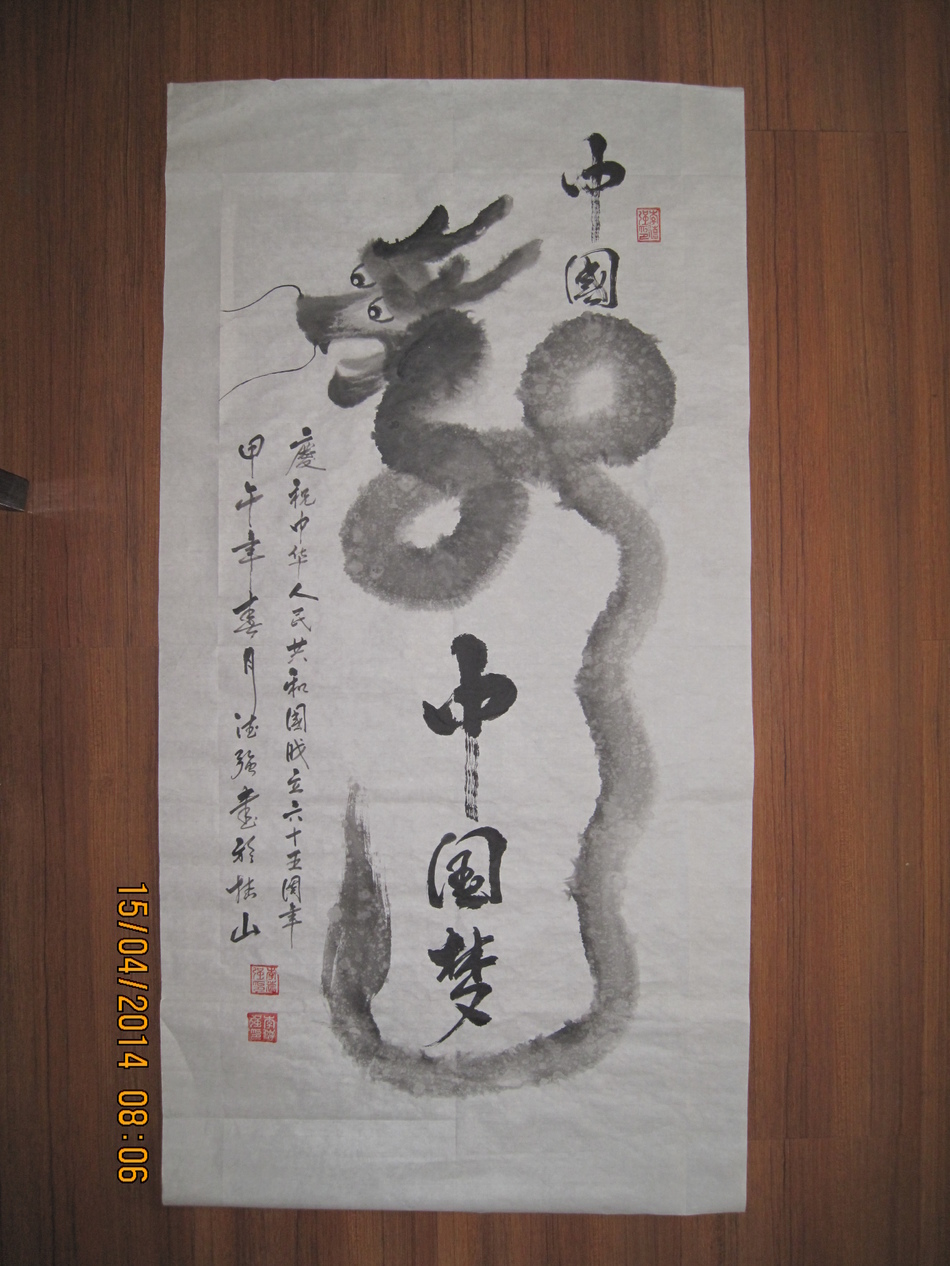 中國
中国梦
慶祝中华人民共和国成立六十五周年
甲午年春月德强画於桂山
15/04/2014 08:06